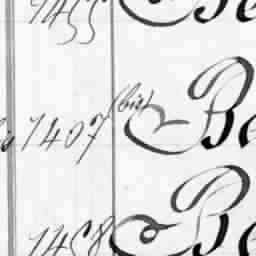 1455 Be
1407 (bis) Be
1458 Be